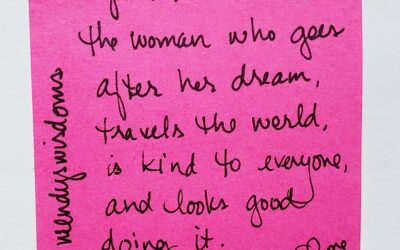 the woman who goes
after her dream,
travels the world,
is kind to everyone,
and looks good
doing it.
wendyswisdoms